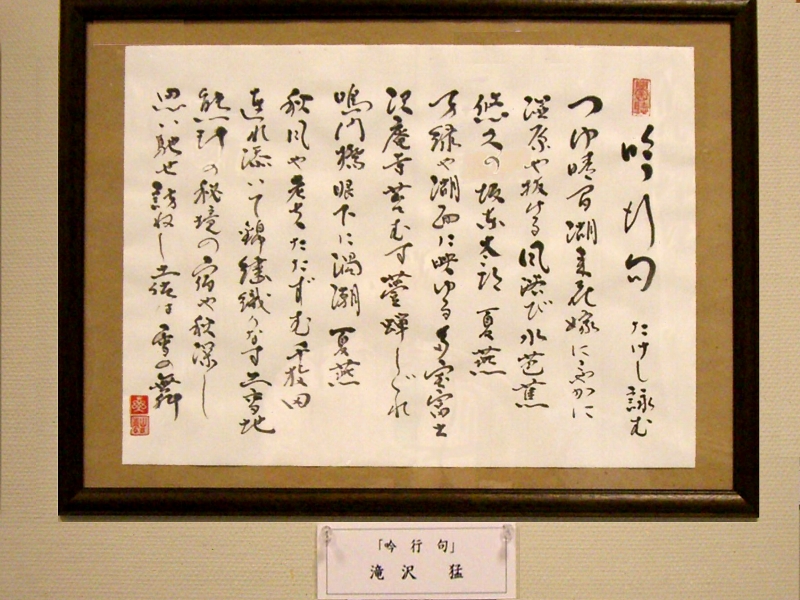 吟行句
たけし詠む
つゆ晴間湖手花嫁にこやかに
湿原や抜ける風浴び水芭蕉
悠久の坂東太郎夏燕
万緑や湖面に映ゆる 富士
沢庵寺苔むす甍蝉しぐれ
鳴門橋眼下に渦潮夏燕
秋風や老老たたずむ千枚田
連れ添いて錦繍織りなす 地
熊野の秘境の宿や秋深し
思い馳せ訪ねし土佐は雪の舞
「吟行句」
滝沢 猛